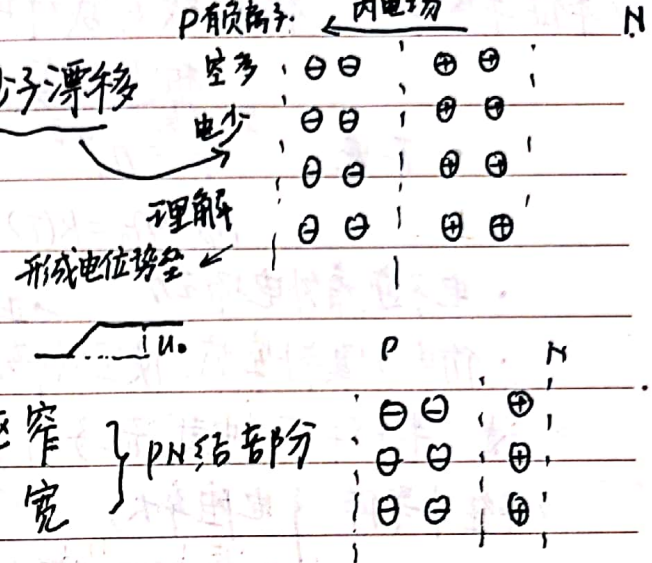 P有负离子. 内电场 N
空多 ⊖ ⊖ ⊕ ⊕
少子漂移
电少 ⊖ ⊖ ⊕ ⊕
⊖ ⊖ ⊕ ⊕
理解 ⊖ ⊖ ⊕ ⊕
形成电位势垒
U₀ P N
⊖ ⊖ ⊕
窄 PN结部分 ⊖ ⊖ ⊕
宽 ⊖ ⊖ ⊕